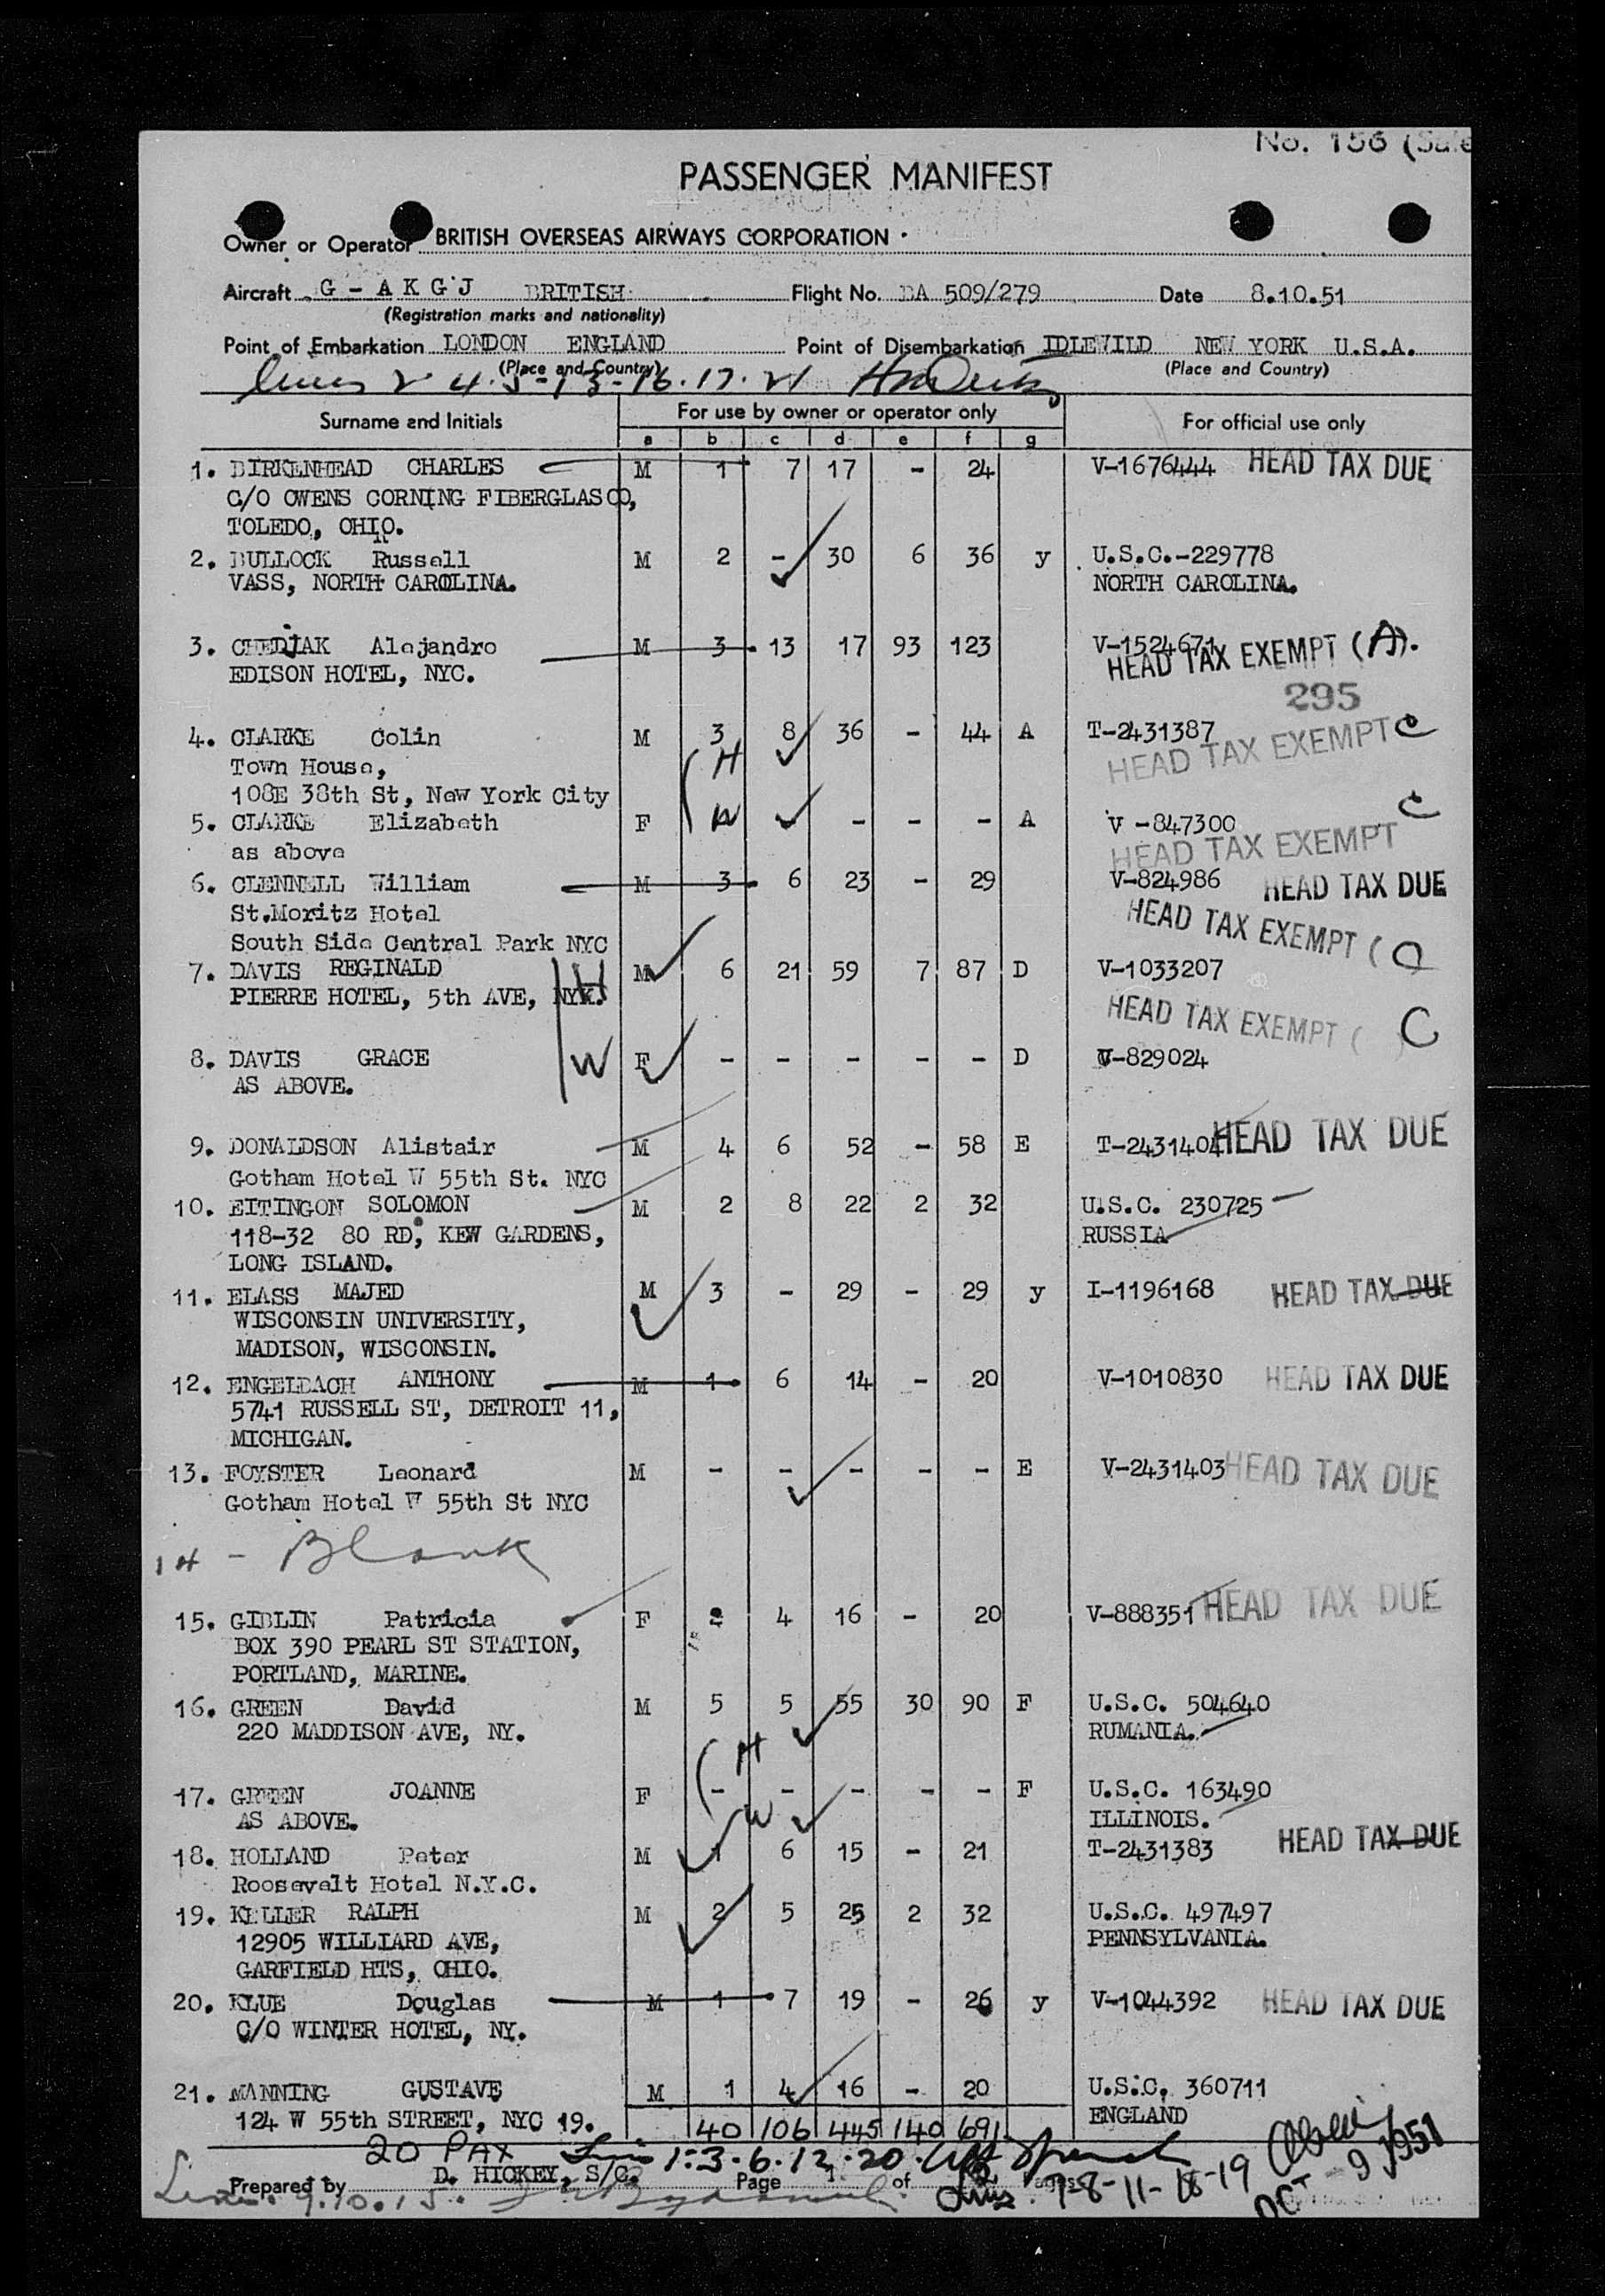 No. 156 (Sale
PASSENGER MANIFEST
Owner or Operator BRITISH OVERSEAS AIRWAYS CORPORATION
Aircraft G - A K G J BRITISH Flight No. BA 509/279 Date 8.10.51
(Registration marks and nationality)
Point of Embarkation LONDON ENGLAND Point of Disembarkation IDLEWILD NEW YORK U.S.A.
(Place and Country) (Place and Country)
2 4.5-13-16.17.21
Surname and Initials For use by owner or operator only For official use only
a b c d e f g
1. BIRKENHEAD CHARLES M 1 7 17 - 24 V-1676444 HEAD TAX DUE
C/O OWENS CORNING FIBERGLAS CO,
TOLEDO, OHIO.
2. BULLOCK Russell M 2 - 30 6 36 y U.S.C.-229778
VASS, NORTH CAROLINA. NORTH CAROLINA.
3. CHEDJAK Alejandro M 3 13 17 93 123 V-1524671
EDISON HOTEL, NYC. HEAD TAX EXEMPT (A).
295
4. CLARKE Colin M 3 8 36 - 44 A T-2431387
Town House, H HEAD TAX EXEMPT C
108E 38th St, New York City
5. CLARKE Elizabeth F W - - - - A V -847300 C
as above HEAD TAX EXEMPT
6. CLENNELL William M 3 6 23 - 29 V-824986 HEAD TAX DUE
St.Moritz Hotel
South Side Central Park NYC HEAD TAX EXEMPT ( C
7. DAVIS REGINALD M 6 21 59 7 87 D V-1033207
PIERRE HOTEL, 5th AVE, NYK. H
HEAD TAX EXEMPT ( ) C
8. DAVIS GRACE W F - - - - - D V-829024
AS ABOVE.
9. DONALDSON Alistair M 4 6 52 - 58 E T-2431404 HEAD TAX DUE
Gotham Hotel W 55th St. NYC
10. EITINGON SOLOMON M 2 8 22 2 32 U.S.C. 230725
118-32 80 RD, KEW GARDENS, RUSSIA
LONG ISLAND.
11. ELASS MAJED M 3 - 29 - 29 y I-1196168 HEAD TAX DUE
WISCONSIN UNIVERSITY,
MADISON, WISCONSIN.
12. ENGELBACH ANTHONY M 1 6 14 - 20 V-1010830 HEAD TAX DUE
5741 RUSSELL ST, DETROIT 11,
MICHIGAN.
13. FOYSTER Leonard M - - - - - E V-2431403 HEAD TAX DUE
Gotham Hotel W 55th St NYC
14 - Blank
15. GIBLIN Patricia F 2 4 16 - 20 V-888351 HEAD TAX DUE
BOX 390 PEARL ST STATION,
PORTLAND, MARINE.
16. GREEN David M 5 5 55 30 90 F U.S.C. 504640
220 MADDISON AVE, NY. RUMANIA.
H
17. GREEN JOANNE F - - - - - F U.S.C. 163490
AS ABOVE. W ILLINOIS.
18. HOLLAND Peter M 1 6 15 - 21 T-2431383 HEAD TAX DUE
Roosevelt Hotel N.Y.C.
19. KELLER RALPH M 2 5 25 2 32 U.S.C. 497497
12905 WILLIARD AVE, PENNSYLVANIA.
GARFIELD HTS, OHIO.
20. KLUE Douglas M 1 7 19 - 26 y V-1044392 HEAD TAX DUE
C/O WINTER HOTEL, NY.
21. MANNING GUSTAVE M 1 4 16 - 20 U.S.C. 360711
124 W 55th STREET, NYC 19. ENGLAND
40 106 445 140 691
20 PAX 1.3.6.12.20.
Prepared by D. HICKEY, S/C. Page 1 of 2 Pages 7-8-11-18-19
9.10.15. OCT 9 1951